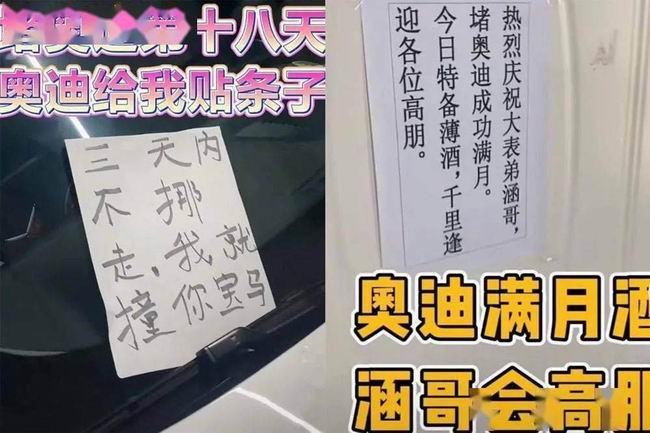 堵奥迪第十八天
奥迪给我贴条子
三天内
不挪
走，我就
撞你宝马
热烈庆祝大表弟涵哥，
堵奥迪成功满月。
今日特备薄酒，千里逢
迎各位高朋。
奥迪满月酒
涵哥会高朋